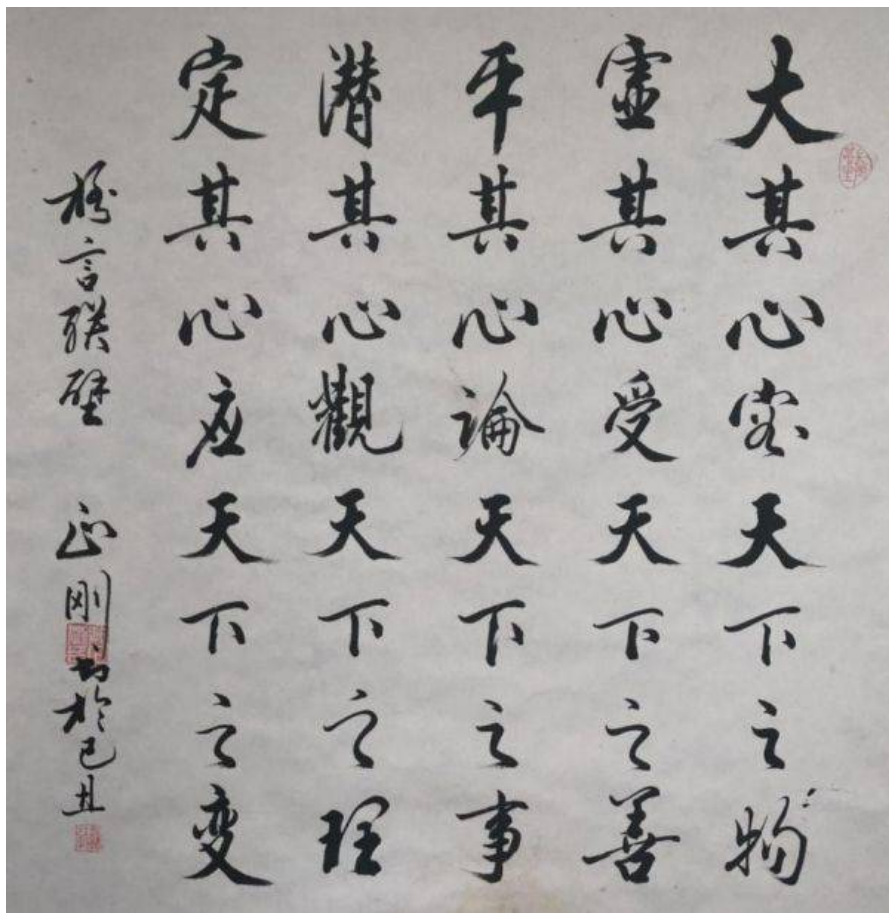 大其心容天下之物
虚其心受天下之善
平其心論天下之事
潜其心觀天下之理
定其心应天下之变
格言联璧 正刚书於己丑